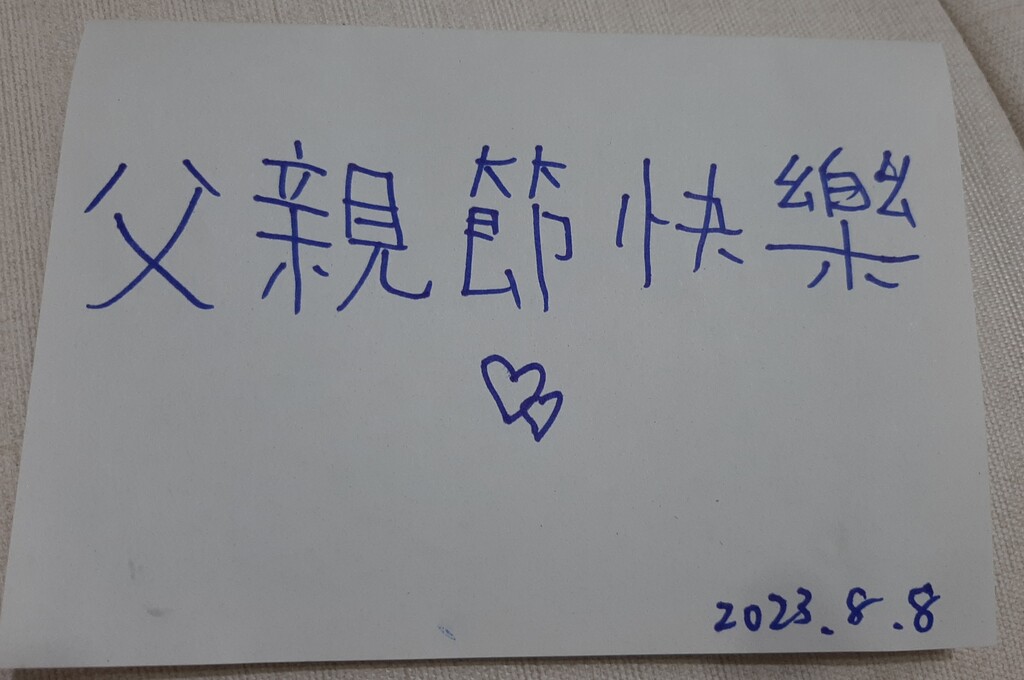 父親節快樂
2023.8.8